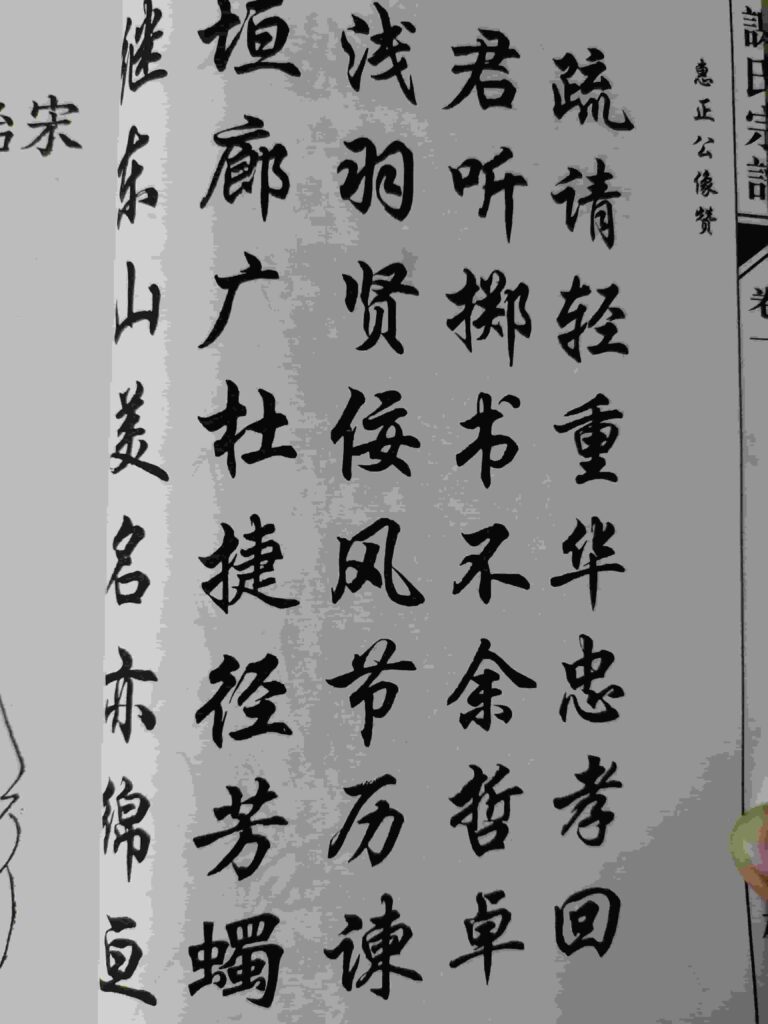 氏宗譜
卷一
惠正公像赞
疏请轻重华忠孝回
君听掷书不余哲卓
浅羽贤佞风节历谏
垣廊广杜捷径芳蠋
继东山美名亦绵亘
宋